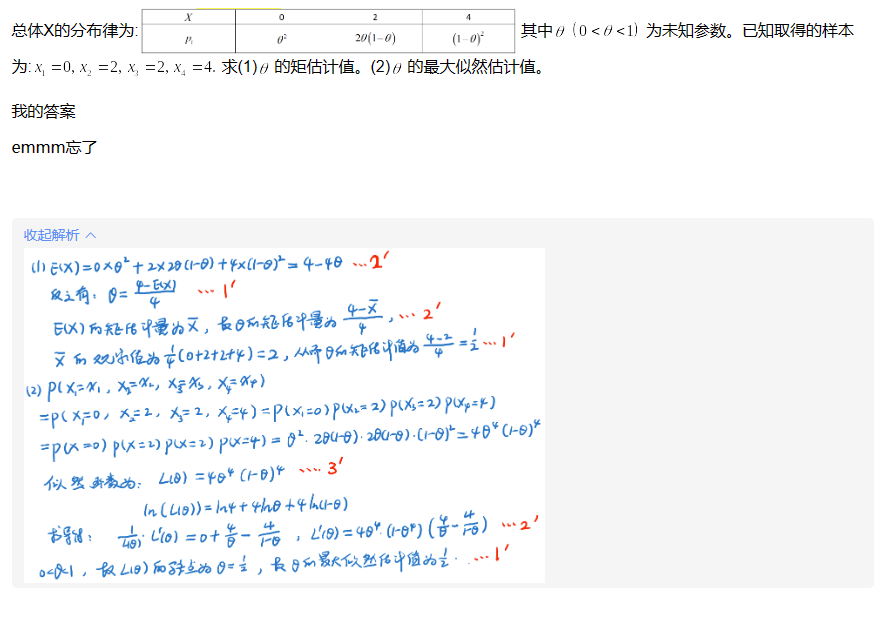 总体X的分布律为: X 0 2 4 其中θ（0＜θ＜1）为未知参数。已知取得的样本
Pᵢ θ² 2θ(1−θ) (1−θ)²
为: x₁ =0, x₂ =2, x₃ =2, x₄ =4. 求(1)θ 的矩估计值。(2)θ 的最大似然估计值。
我的答案
emmm忘了
收起解析
(1) E(X)=0×θ²+2×2θ(1-θ)+4×(1-θ)²=4-4θ …2′
反之有: θ=(4-E(X))/4 …1′
E(X)的矩估计量为X̄，故θ的矩估计量为(4-X̄)/4，…2′
X̄的观察值为1/4(0+2+2+4)=2，从而θ的矩估计值为(4-2)/4=1/2…1′
(2) P(X₁=x₁, X₂=x₂, X₃=x₃, X₄=x₄)
=P(X₁=0, X₂=2, X₃=2, X₄=4)=P(X₁=0)P(X₂=2)P(X₃=2)P(X₄=4)
=P(X=0)P(X=2)P(X=2)P(X=4)=θ²·2θ(1-θ)·2θ(1-θ)·(1-θ)²=4θ⁴(1-θ)⁴
似然函数为: L(θ)=4θ⁴(1-θ)⁴ ….3′
ln(L(θ))=ln4+4lnθ+4ln(1-θ)
求导得: 1/L(θ)·L′(θ)=0+4/θ-4/(1-θ)，L′(θ)=4θ⁴·(1-θ⁴)(4/θ-4/(1-θ)) …2′
0<θ<1，故L(θ)的驻点为θ=1/2，故θ的最大似然估计值为1/2. …1′